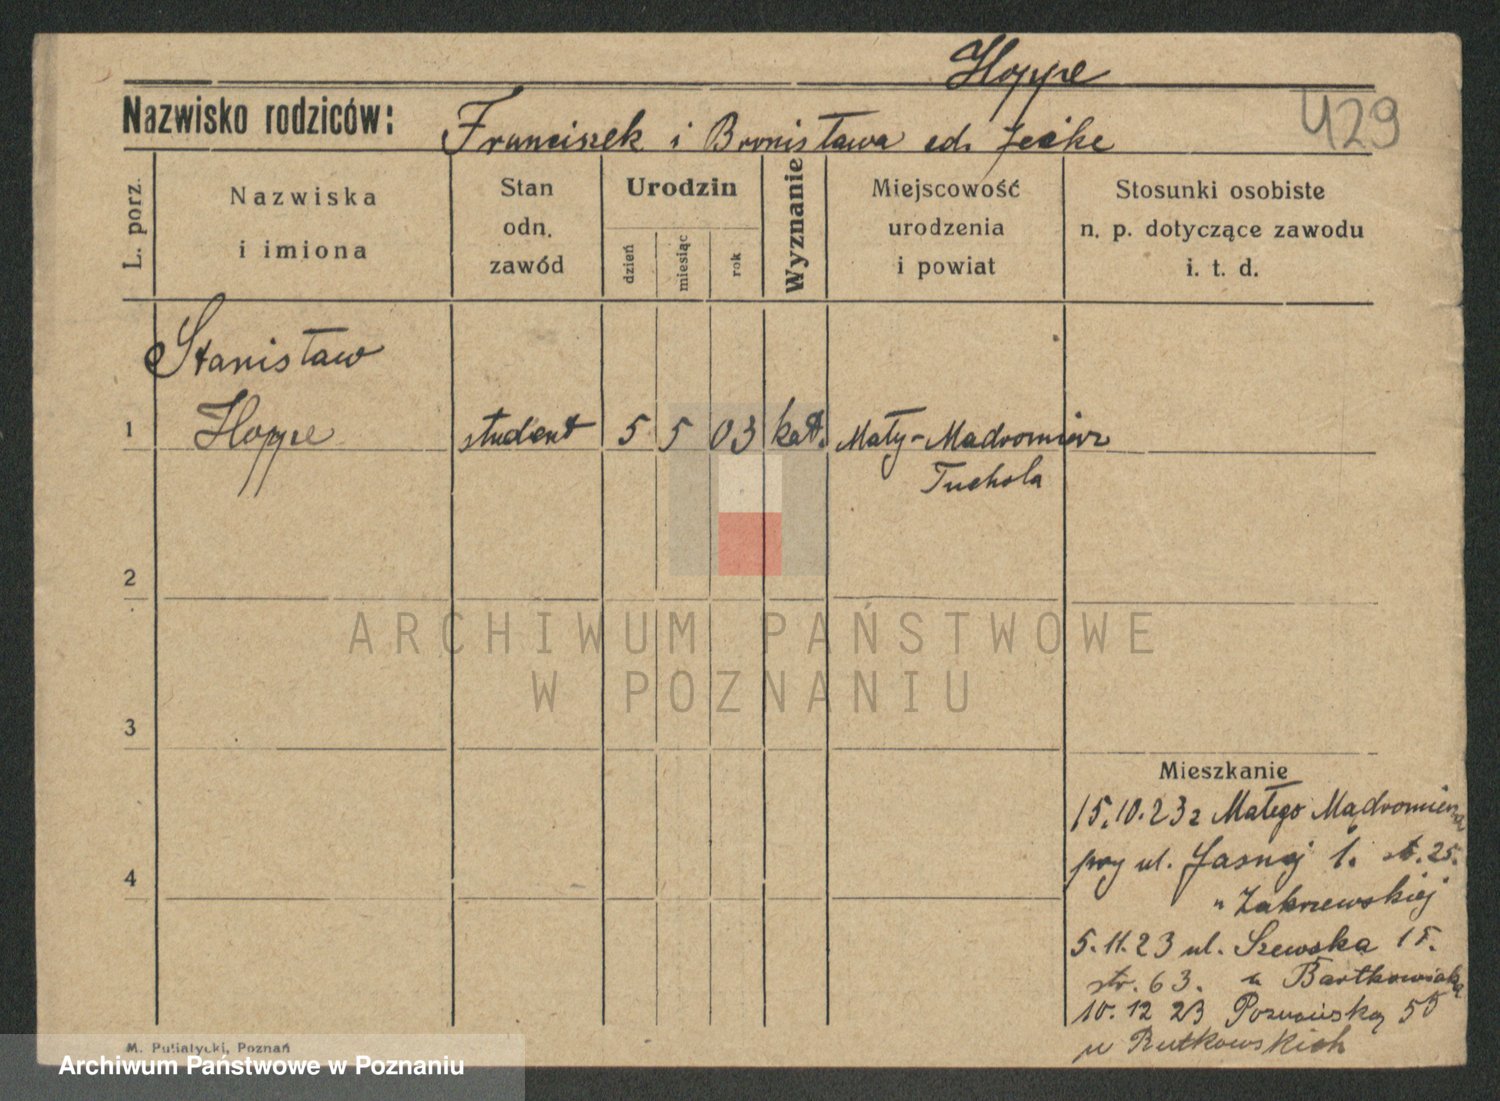 Hoppe
Nazwisko rodziców: Franciszek i Bronisława
429
L. porz.
Nazwiska i imiona
Stan odn. zawód
Urodzin
dzień
miesiąc
rok
Wyznanie
Miejscowość urodzenia i powiat
Stosunki osobiste n. p. dotyczące zawodu i. t. d.
Stanisław
1 Hoppe student 5 5 03 kat. Mały-Mądromierz
Tuchola
2
3
4
ARCHIWUM PAŃSTWOWE
W POZNANIU
Mieszkanie
15.10.23 z Małego Mądromierza
przy ul. Jasnej 1. st. 25.
u Zakrzewskiej
5.11.23 ul. Szewska 15.
str. 63. u Bartkowiaka
10.12 23 Poznańska 55
u Rutkowskich
M. Putiatycki, Poznań
Archiwum Państwowe w Poznaniu